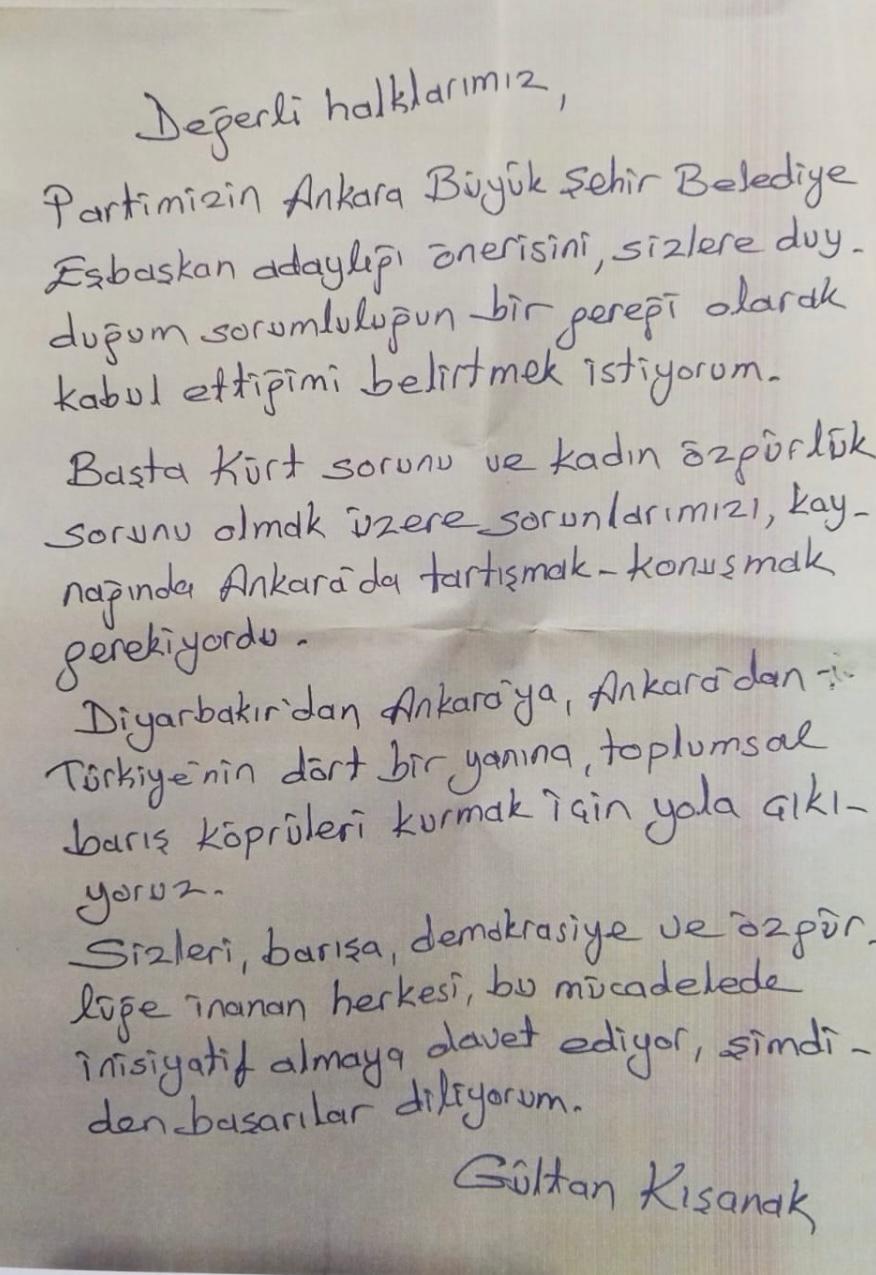 Değerli halklarımız,
Partimizin Ankara Büyük Şehir Belediye
Eşbaşkan adaylığı önerisini, sizlere duy-
duğum sorumluluğun bir gereği olarak
kabul ettiğimi belirtmek istiyorum.
Başta Kürt sorunu ve kadın özgürlük
sorunu olmak üzere sorunlarımızı, kay-
nağında Ankara'da tartışmak-konuşmak
gerekiyordu.
Diyarbakır'dan Ankara'ya, Ankara'dan
Türkiye'nin dört bir yanına, toplumsal
barış köprüleri kurmak için yola çıkı-
yoruz.
Sizleri, barışa, demokrasiye ve özgür-
lüğe inanan herkesi, bu mücadelede
inisiyatif almaya davet ediyor, şimdi-
den başarılar diliyorum.
Gültan Kışanak